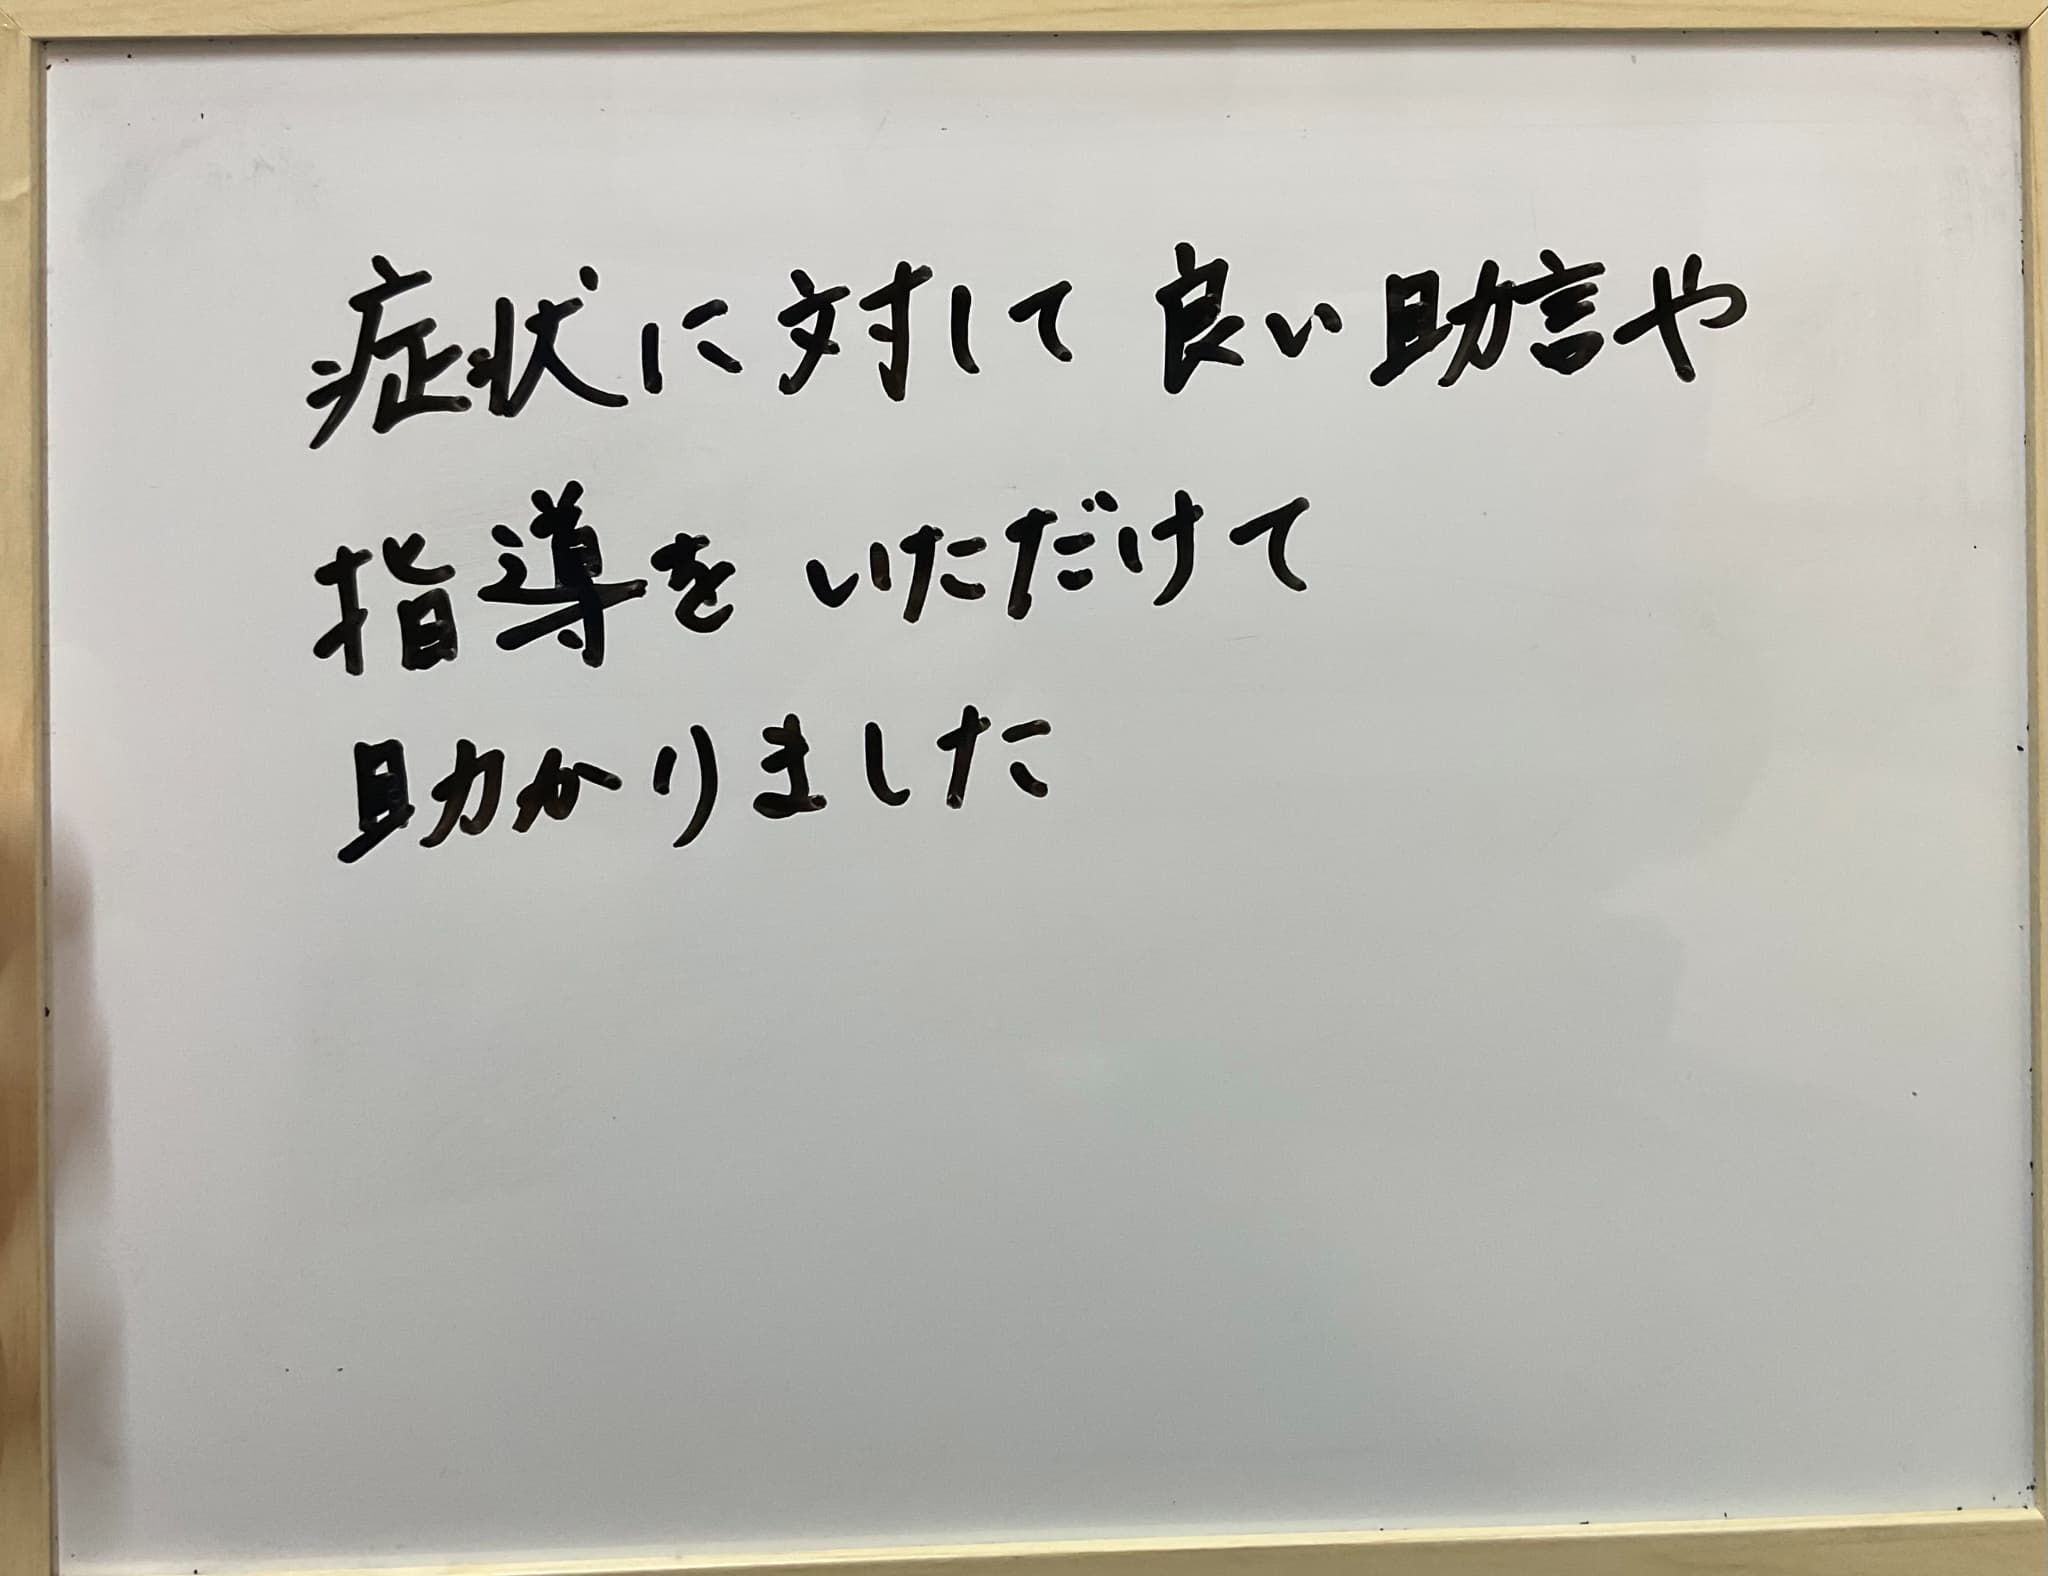 症状に対して良い助言や
指導をいただけて
助かりました